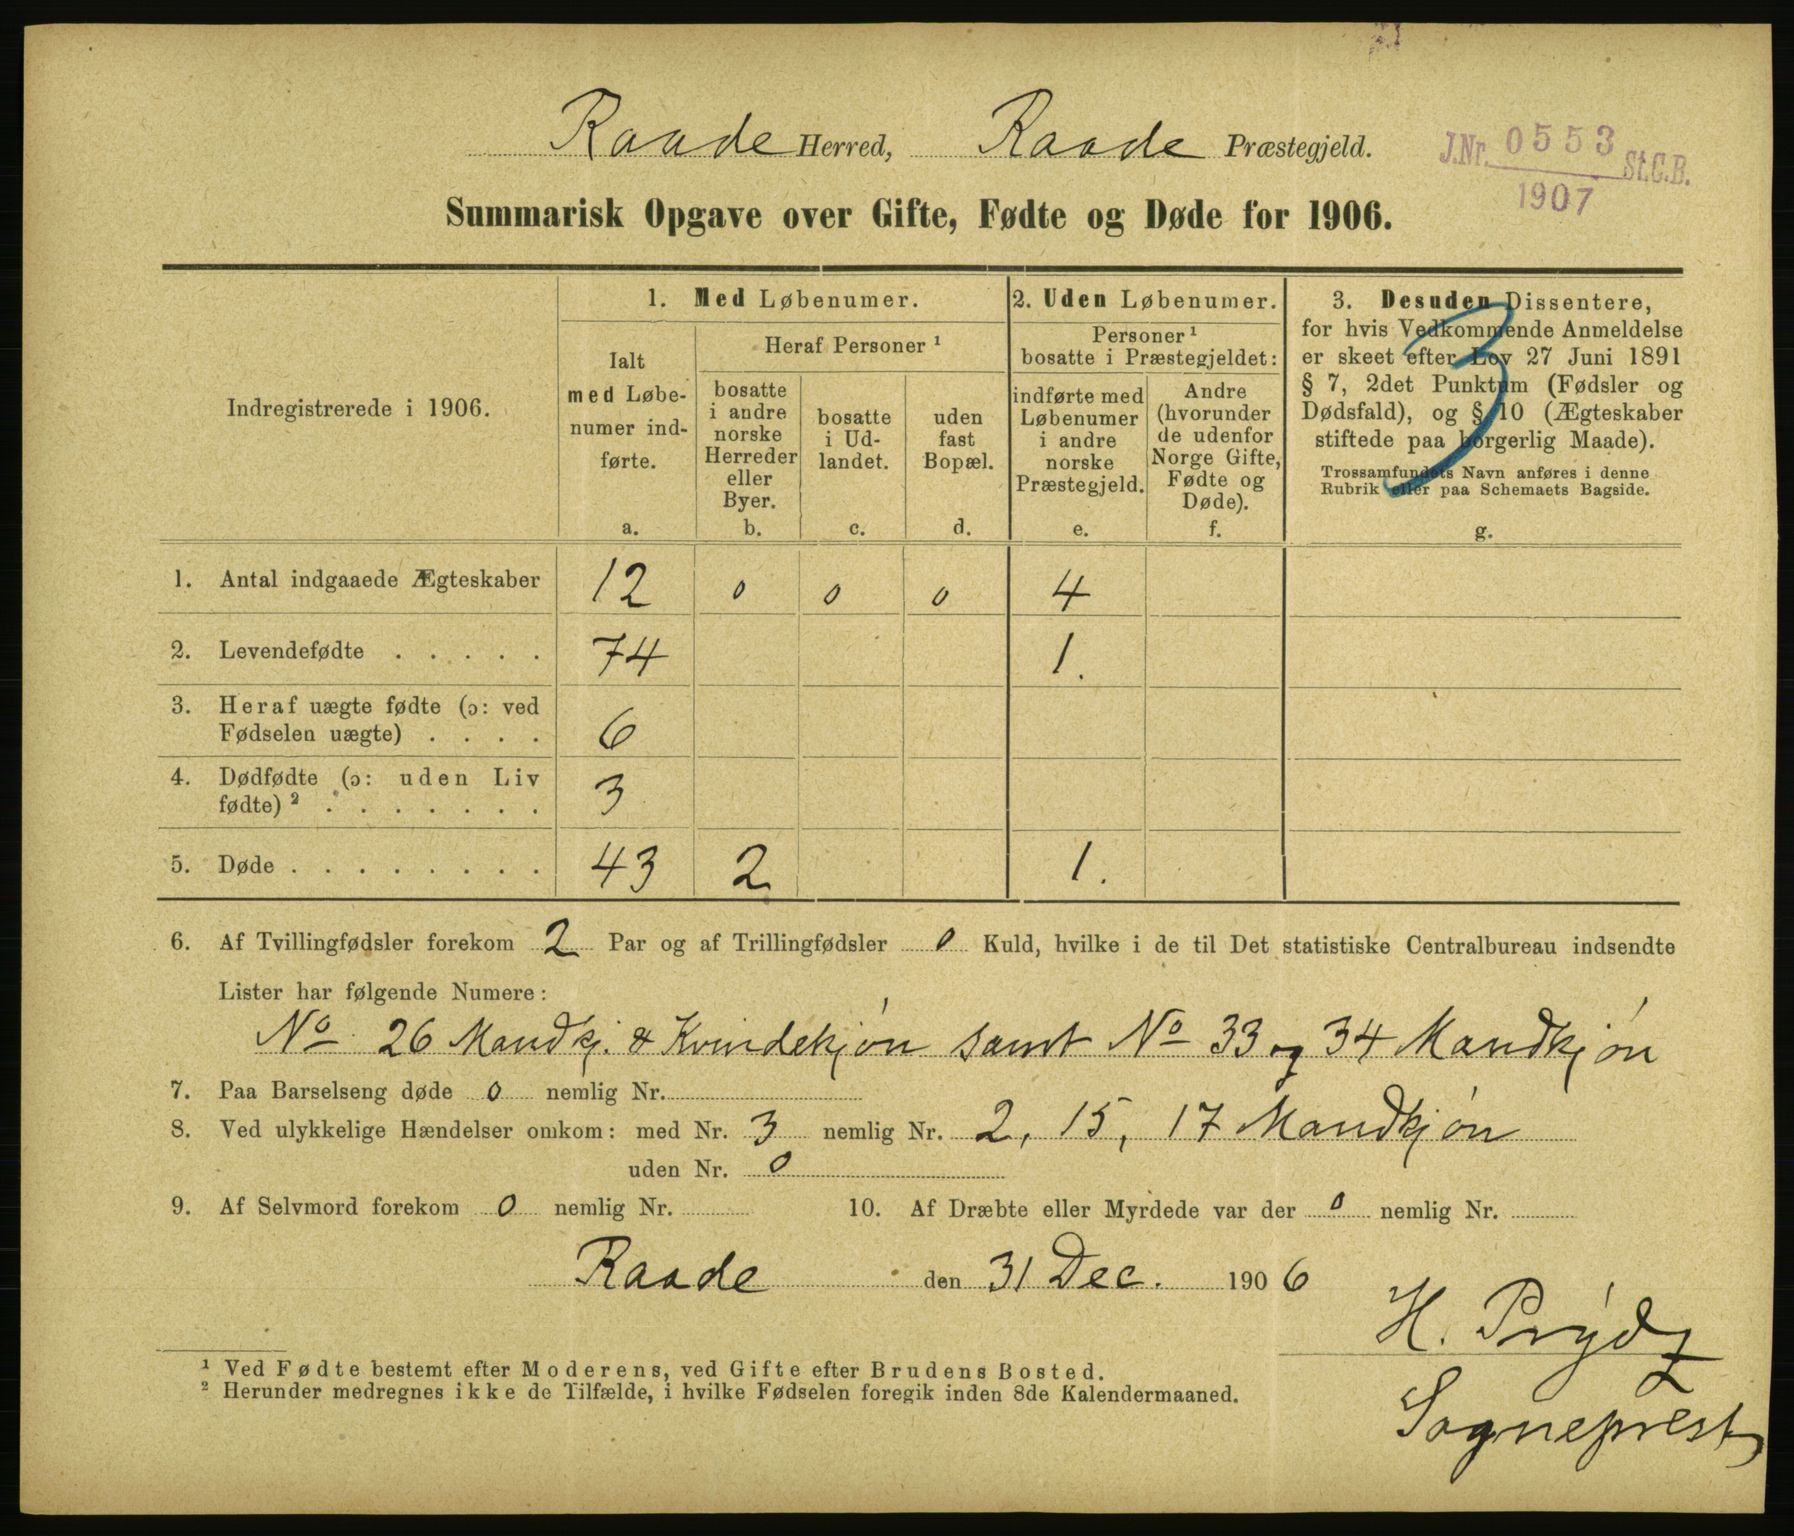 Raade Herred, Raade Præstegjeld.
J.Nr. 0553 St.C.B.
1907
Summarisk Opgave over Gifte, Fødte og Døde for 1906.
Indregistrerede i 1906.
1. Med Løbenumer.
Ialt
med Løbe-
numer ind-
førte.
a.
Heraf Personer ¹
bosatte
i andre
norske
Herreder
eller
Byer.
b.
bosatte
i Ud-
landet.
c.
uden
fast
Bopæl.
d.
2. Uden Løbenumer.
Personer ¹
bosatte i Præstegjeldet:
indførte med
Løbenumer
i andre
norske
Præstegjeld.
e.
Andre
(hvorunder
de udenfor
Norge Gifte,
Fødte og
Døde).
f.
3. Desuden Dissentere,
for hvis Vedkommende Anmeldelse
er skeet efter Lov 27 Juni 1891
§ 7, 2det Punktum (Fødsler og
Dødsfald), og § 10 (Ægteskaber
stiftede paa borgerlig Maade).
Trossamfundets Navn anføres i denne
Rubrik eller paa Schemaets Bagside.
g.
3
1. Antal indgaaede Ægteskaber 12 0 0 0 4
2. Levendefødte . . . . . 74 1.
3. Heraf uægte fødte (ɔ: ved
Fødselen uægte) . . . . 6
4. Dødfødte (ɔ: uden Liv
fødte) ² . . . . . . . 3
5. Døde . . . . . . . . 43 2 1.
6. Af Tvillingfødsler forekom 2 Par og af Trillingfødsler 0 Kuld, hvilke i de til Det statistiske Centralbureau indsendte
Lister har følgende Numere:
No 26 Mandkj. & Kvindekjøn samt No 33 og 34 Mandkjøn
7. Paa Barselseng døde 0 nemlig Nr.
8. Ved ulykkelige Hændelser omkom: med Nr. 3 nemlig Nr. 2, 15, 17 Mandkjøn
uden Nr. 0
9. Af Selvmord forekom 0 nemlig Nr. 10. Af Dræbte eller Myrdede var der 0 nemlig Nr.
Raade den 31 Dec. 1906
H. Prydz
Sogneprest
¹ Ved Fødte bestemt efter Moderens, ved Gifte efter Brudens Bosted.
² Herunder medregnes ikke de Tilfælde, i hvilke Fødselen foregik inden 8de Kalendermaaned.